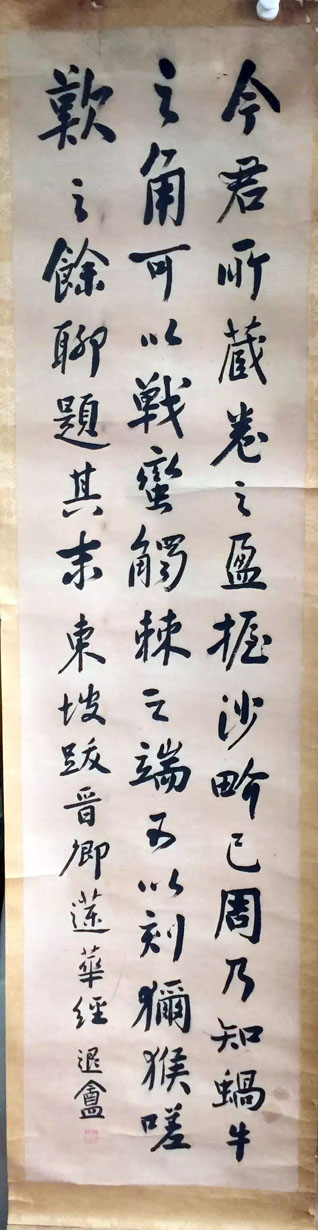 今君所藏卷之盈握沙界已周乃知蝸牛
之角可以戰蠻觸棘之端可以刻獼猴嗟
歎之餘聊題其末東坡跋晉卿蓮華經 退盦